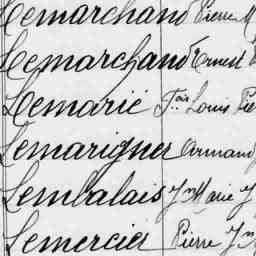 Lemarchand Pierre M
Lemarchand Ernest
Lemarié Fois Louis Pie
Lemarigner Armand
Lembalais Jn Marie J
Lemercier Pierre Jn